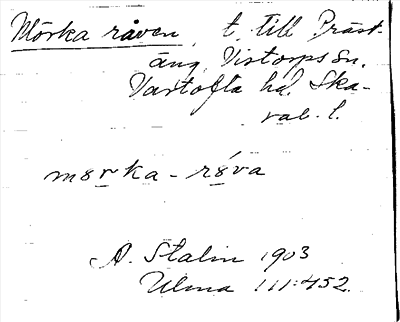 Mörka råven, t. till Präst-
äng, Vistorps sn.
Vartofta hd. Ska-
rab. l.
mørka-røva
A. Stalin 1903
Ulma 111:452.